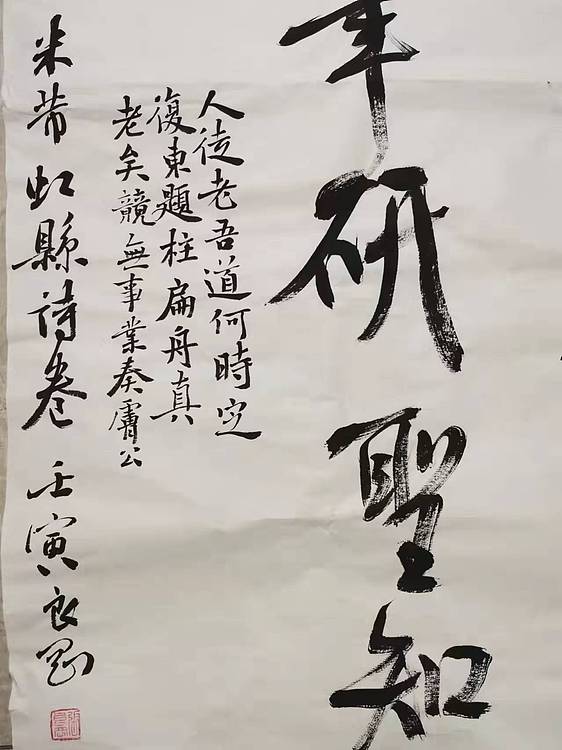 研聖知
人徒老吾道何時定
復東題柱扁舟真
老矣競無事業奏膚公
米芾虹縣詩卷 壬寅良剛